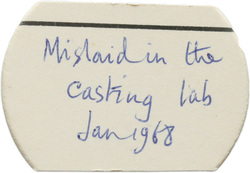 Mislaid in the
casting lab
Jan 1968